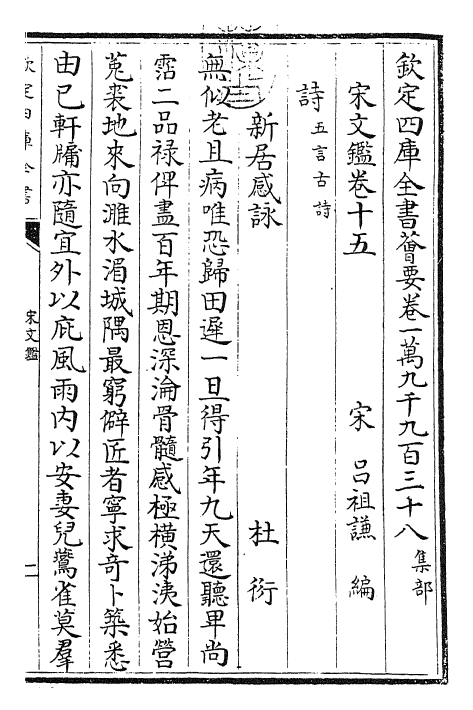 欽定四庫全書薈要卷一萬九千九百三十八 集部
宋文鑑卷十五 宋 呂祖謙 編
詩 五言古詩
新居感詠 杜衍
無似老且病唯恐歸田遲一旦得引年九天還聽卑尚
霑二品禄俾盡百年期恩深淪骨髓感極橫涕洟始營
菟裘地來向濉水湄城隅最窮僻匠者寧求奇卜築悉
由已軒牗亦隨宜外以庇風雨内以安妻兒鷰雀莫羣
欽定四庫全書
宋文鑑